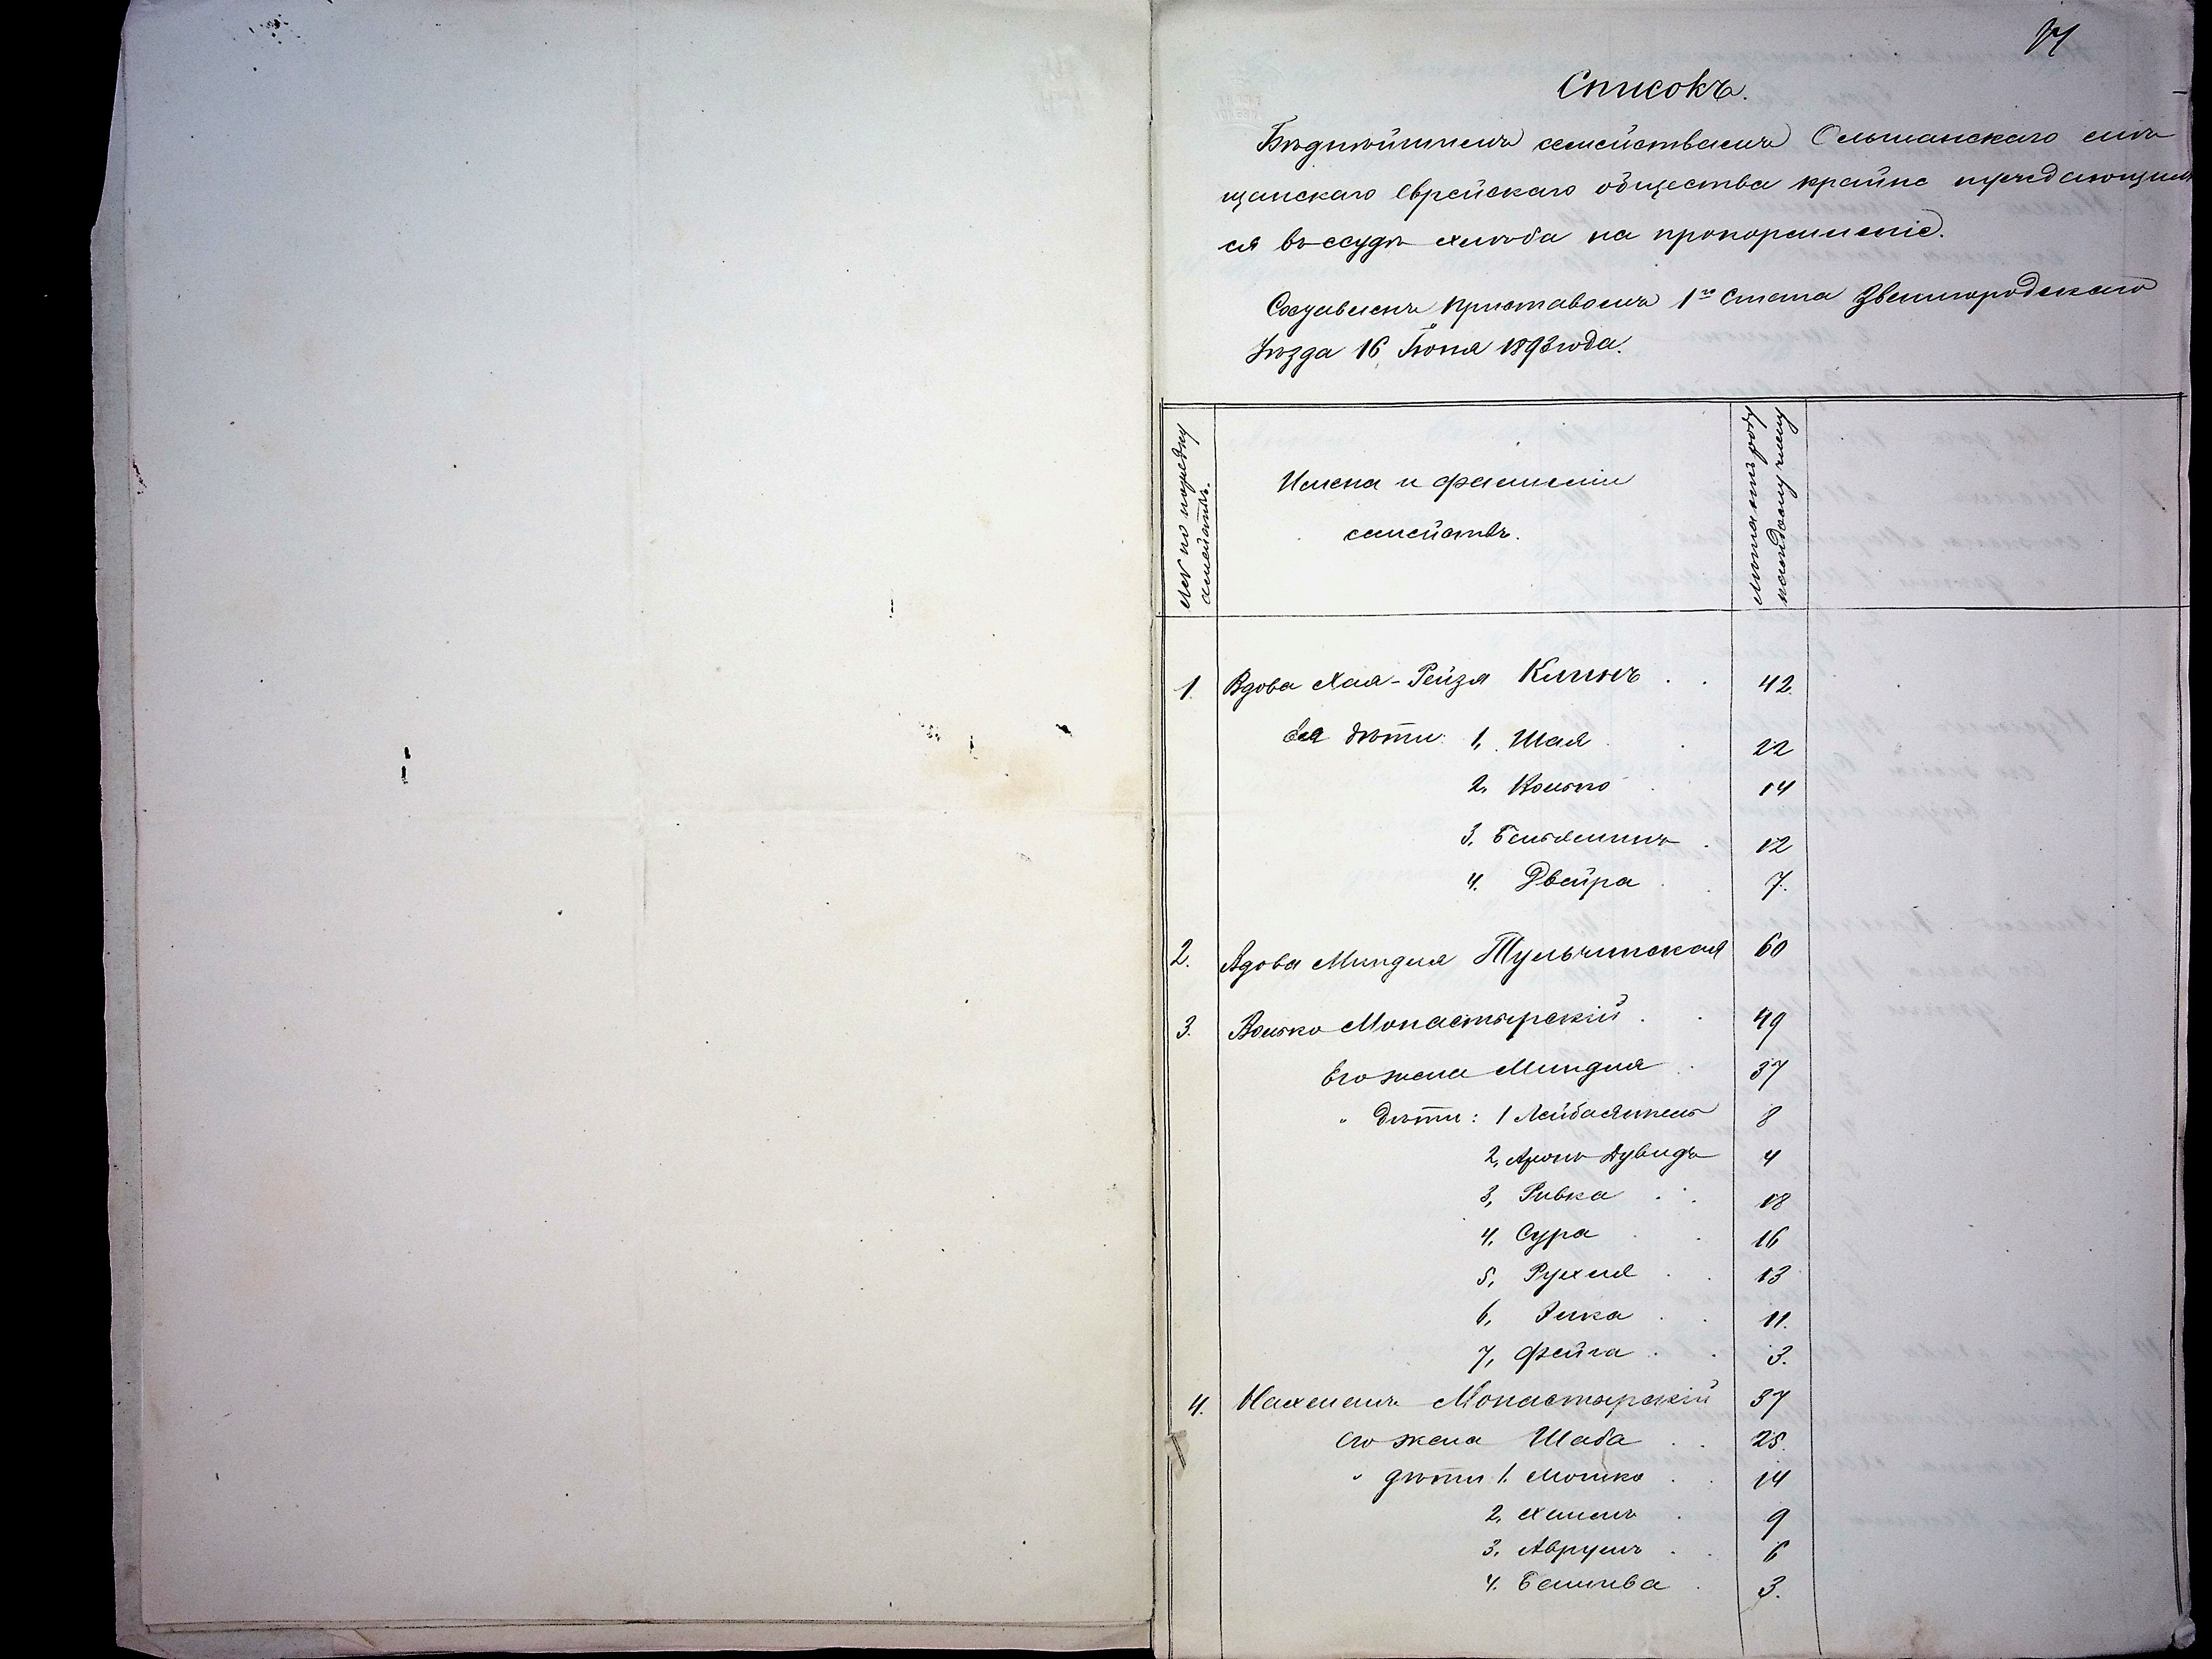 Списокъ.
Бѣднѣйшимъ семействамъ Ольшанскаго мѣ
щанскаго Еврейскаго общества крайне нуждающим
ся въ ссудѣ хлѣба на прокормленіе.
Составленъ Приставомъ 1го Стана Звенигородскаго
Уѣзда 16 Іюня 1893 года.
№№ по порядку
семействъ.
Имена и фамиліи
семействъ.
Лѣта отъ роду
каждому члену
1. Вдова Хая-Рейзя Клинъ . . 42.
Ея дѣти: 1, Шая 22
2, Волько 14
3, Беньяминъ 12
4. Двейра 7.
2. Вдова Миндля Тульчинская 60
3. Волько Монастырскій . . 49
Его жена Миндля 37
" Дѣти: 1 Лейба 8
2, Аронъ Дувидъ 4
3, Ривка . . 18
4. Сура . . 16
5, Рухля . . 13
6, . . 11.
7, Фейга . . 3.
4. Нахманъ Монастырскій 37
его жена Шава . . 25.
" дѣти 1. Мошко . . 14
2, 9
3. Аврумъ . . 6
4. . 3.